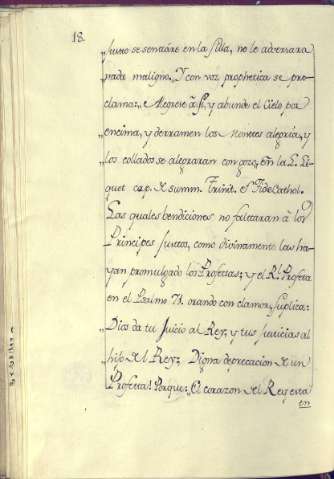 18.
Justo se sentáre en la silla, no le adversara
nada maligno. Y con voz prophetica se pro-
clama: Alegrese
y abunde el Cielo por
encima, y derramen los Montes alegria, y
los collados se alegraran con gozo; en la L.
cap. de summ. Trinit. et Fide Cathol.
Las quales bendiciones no faltaran á los
Principes Justos, como divinamente las ha-
yan promulgado los Profetas; y el Rl. Profeta
en el Psalmo 71. orando con clamor, suplica:
Dios da tu Juicio al Rey, y tus justicias al
hijo del Rey: Digna deprecacion de un
Profeta! Porque: El corazon del Rey esta
en